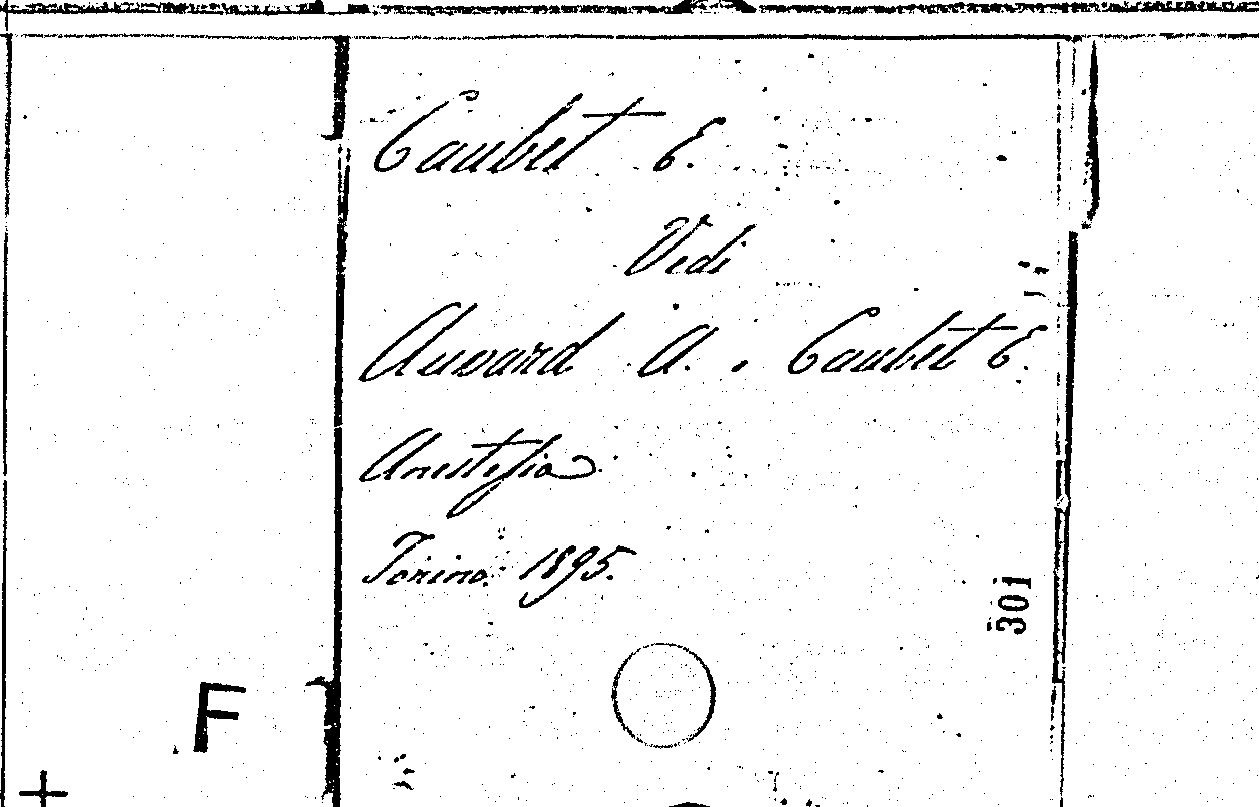 Caubet E.
Vedi
Auvard A. . Caubet E.
Anestesia
Torino. 1895.
301
F